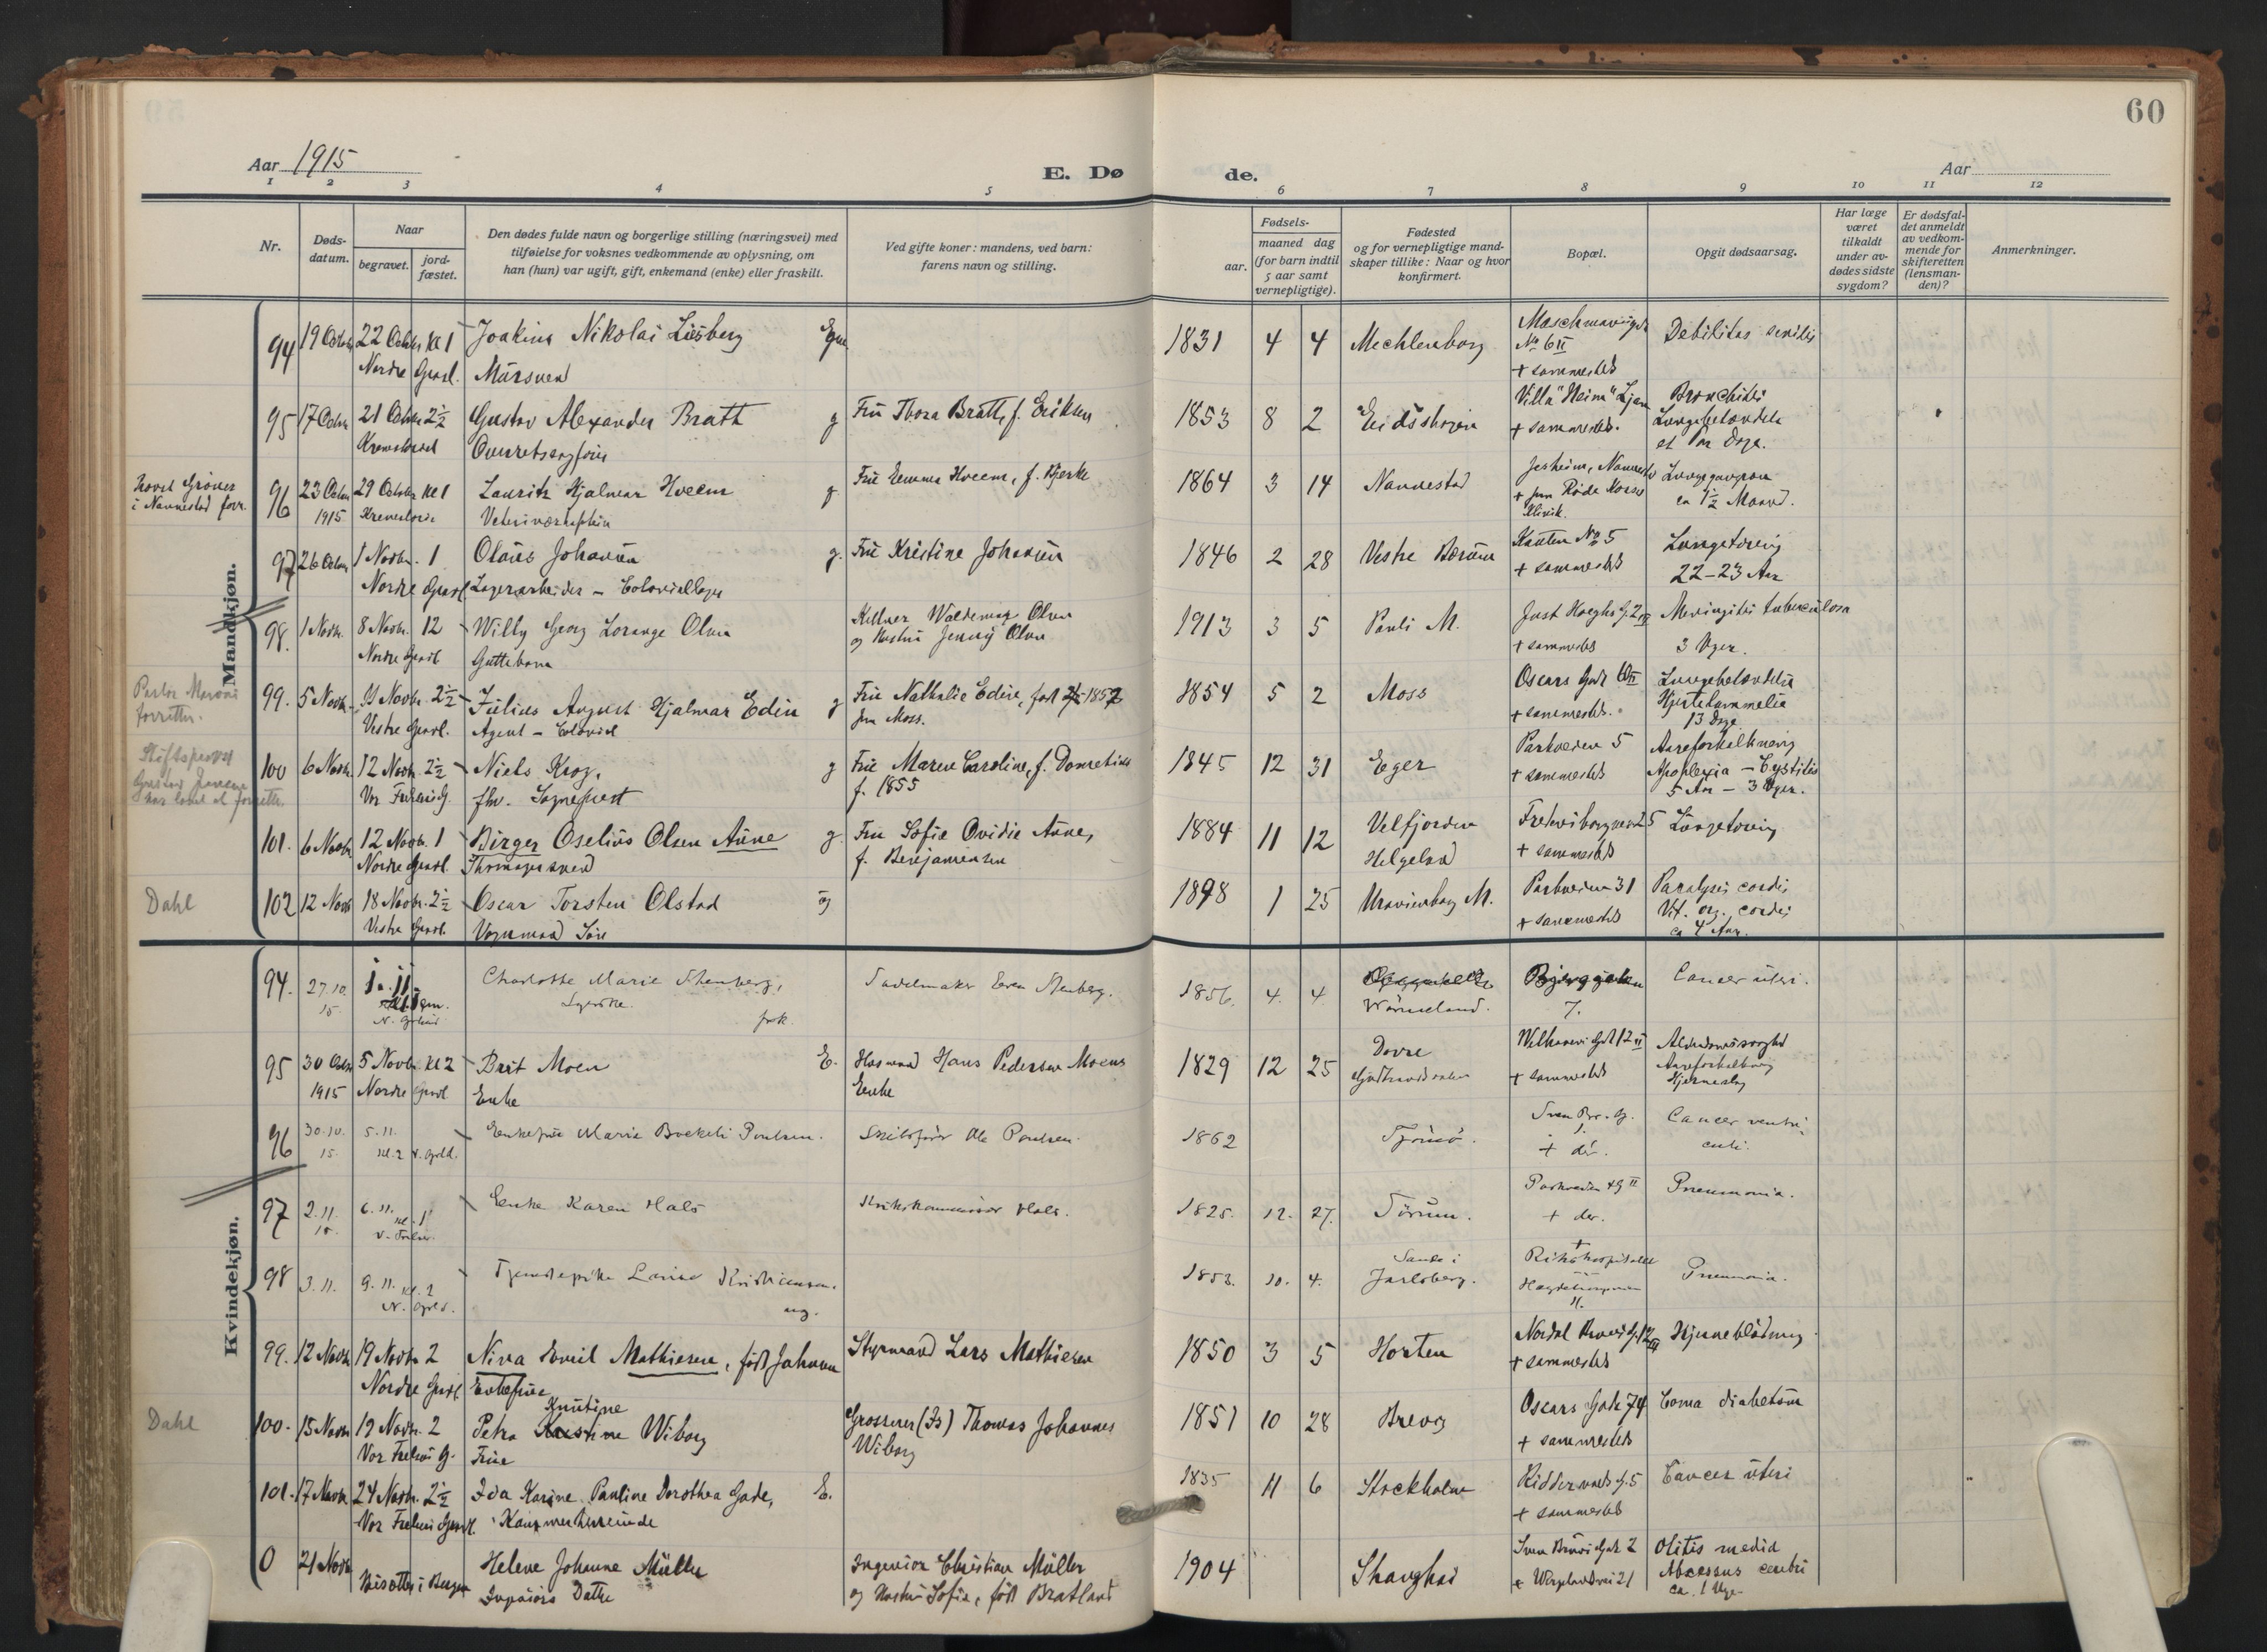 60
Aar 1915
E. Dø de.
Aar
1 2 3 4 5 6 7 8 9 10 11 12
Nr.
Døds-
datum.
Naar
begravet.
jord-
fæstet.
Den dødes fulde navn og borgerlige stilling (næringsvei) med
tilføielse for voksnes vedkommende av oplysning, om
han (hun) var ugift, gift, enkemand (enke) eller fraskilt.
Ved gifte koner: mandens, ved barn:
farens navn og stilling.
Fødsels-
aar.
maaned dag
(for barn indtil
5 aar samt
vernepligtige).
Fødested
og for vernepligtige mand-
skaper tillike: Naar og hvor
konfirmert.
Bopæl.
Opgit dødsaarsag.
Har læge
været
tilkaldt
under av-
dødes sidste
sygdom?
Er dødsfal-
det anmeldt
av vedkom-
mende for
skifteretten
(lensman-
den)?
Anmerkninger.
Mandkjøn.
94 19 Octobr 22 Octobr Kl 1 Joakim Nikolai Liisberg 1831 4 4 Mechlenborg No 6 II Debilitas senilis
Nordre Gravl. Mursvend + sammesteds
95 17 Octbr 21 Octbr 2½ Gustav Alexander Bratt g Fru Thora Bratt, f. Eriksen 1853 8 2 Eidsskogen Villa "Heim" Ljan Bronchitis
Overretssagfører + sammesteds. Lungebetændelse
96 23 Octbr 29 Octobr Kl 1 Lauritz Hjalmar Hveem g Fru Emma Hveem, f. Bjerke 1864 3 14 Nannestad Jesheim, Nannestad Lungegangræn
i Nannestad forr. 1915 + Røde Korses ca 1½ Maaned.
Klinik.
97 26 Octbr 1 Novbr. 1 Olaus Johansen g. Fru Kristine Johansen 1846 2 28 Vestre Bærum No 5 Lungetæring
Nordre Gravl. Lagerarbeider – + sammesteds 22–23 Aar
98. 1 Novbr. 8 Novbr. 12 Willy Georg Lorange Olsen Kellner Waldemar Olsen 1913 3 5 Pauli M. Just Hoeghs G. 2 Meningitis tuberculosa
Nordre Gravl. Guttebarn og Hustru Jenny Olsen + sammesteds 3 Uger.
99. 5 Novbr. 9 Novbr. 2½ Julius August Hjalmar Edin g Fru Nathalie Edin, født 1857 1854 5 2 Moss Oscars Gade Lungebetændelse
forretter. Vestre Gravl. Agent – Colonial fra Moss. + sammesteds. Hjertelammelse
13 Dage
Stiftsprovst
Gustav Jensen
100 6 Novbr. 12 Novbr. 2½ Niels Krog, g Fru Maren Caroline, f. 1845 12 31 Eger Parkveien 5 Aareforkalkning
Vor Frelsers G. fhv. Sogneprest f. 1855 + sammesteds Apoplexia – Cystitis
5 Aar – 3 Uger.
101. 6 Novbr 12 Novbr. 1 Birger Oselius Olsen Aune g. Fru Sofie Ovidie Aune, 1884 11 12 Velfjorden Frederiksborgveien 25 Lungetæring
Nordre Gravl. f. Benjaminsen Helgeland + sammesteds
Dahl 102 12 Novbr 18 Novbr. 2½ Oscar Torsten Olstad 1898 1 25 Uranienborg M. Parkveien 31 Paralysis cordis
Vestre Gravl. Vognmand Søn + sammesteds Vit. org. cordis
ca 4 Aar.
Kvindekjøn.
94. 27.10. 1. 11. Charlotte Marie Stenberg, Sadelmaker Stenberg. 1856. 4. 4 Cancer uteri.
15 Syerske. Wärmeland. 7.
95 30 Octbr 5 Novbr. Kl 2 Brit Moen E. Husmand Hans Pedersen Moens 1829 12 25 Dovre 12 II Alderdomssvaghed
1915 Nordre Gravl Enke Enke + sammesteds Aareforkalkning
Hjerneslag
96 30.10. 5.11. Enkefrue Marie Boekeli Poulsen. Skibsfører Ole Poulsen. 1862 Tjømø. Cancer ventri-
15. kl. 2 V. Gravl. + der. culi.
97 2.11. 6.11. Enke Karen Hals Krikskommissær Hals. 1825. 12. 27. Sørum. Parkveien Pneumonia.
15. kl. 1 + der.
98 3.11. 9.11. kl. 2 Tjenestepike Lovise Kristiansen. 1853. 10. 4. Sande i Rikshospitalet Pneumonia.
N. Gravl. ug. Jarlsberg.
99. 12 Novbr 19 Novbr 2 Nina Mathiesen, født Johnsen Styrmand Lars Mathiesen 1850 3 5 Horten Nordal Bruns G. 12 Hjerneblødning
Nordre Gravl. Enkefrue + sammesteds
Knutine
Dahl 100. 15 Novbr 19 Novbr. 2 Petra Wiborg Grosserer (Is) Thomas Johannes 1851 10 28 Brevig Oscars Gade 74 Coma diabetum
Vor Frelsers G. Frue Wiborg + sammesteds
101. 17 Novbr 24 Novbr. 2½ Ida Karine Pauline Dorothea Gade, E. 1835 11 6 Stockholm Riddervolds G. 5 Cancer uteri
Vor Frelsers Gravl. Kammerherreinde + sammesteds
0 21 Novbr Helene Johanne Müller Ingeniør Christian Müller 1904 Shanghai Sven Bruns Gade 2 Otitis media
Bisættes i Bergen Ingeniørs Datter og Hustru Sofie, født Bratland + Wergelandsvei 21 Abscessus cerebri
ca. 1 Uge